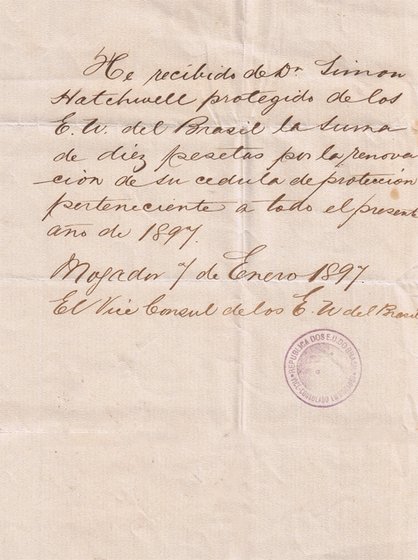 He recibido de Dn Simon
Hatchwell protegido de los
E. U. del Brasil la suma
de diez pesetas por la renova
cion de su cedula de protección
perteneciente a todo el present
año de 1897.
Mogador 7 de Enero 1897.
El Vice Consul de los E. U del Brasil
REPUBLICA DOS E.U. DO BRASIL
VICE-CONSULADO EM